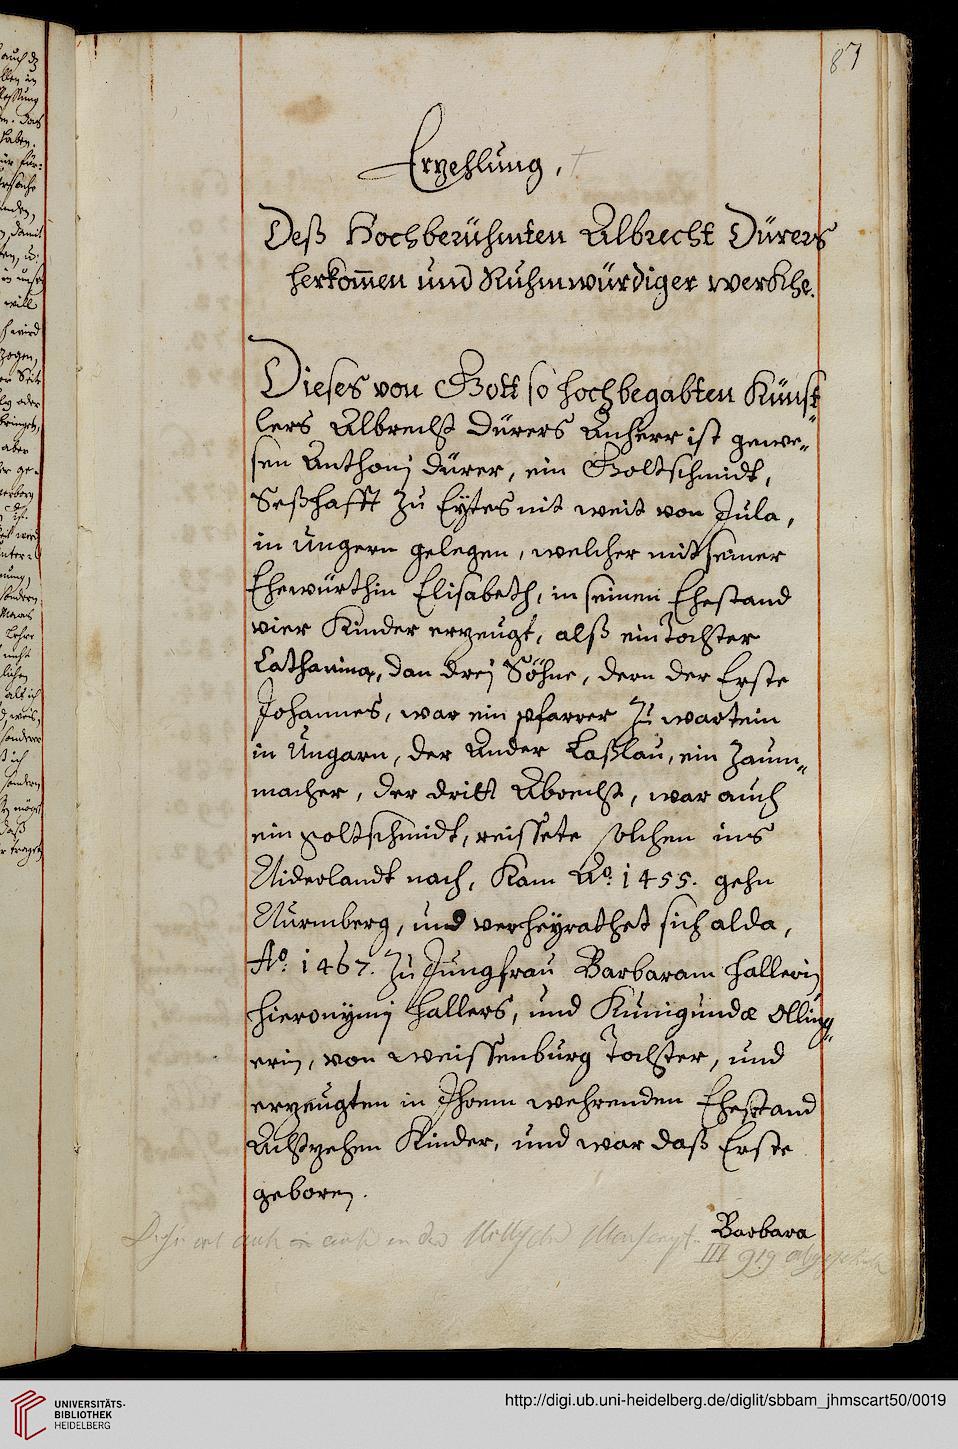 87
Erzehlung.
Deß Hochberühmten Albrecht Dürers
herkom̄en und Ruhmwürdiger werkhe.
Dieses von Gott so hochbegabten Künst-
lers Albrecht Dürers Anherr ist gewe-
sen Anthonj dürer, ein Goltschmidt,
Seßhafft zu Eytes nit weit von Jula,
in Ungern gelegen, welcher mit seiner
Ehewürthin Elisabeth, in seinen Ehestand
vier Kinder erzeugt, alß ein Tochter
Catharina, dan drej Söhne, dern der Erste
Johannes, war ein pfarrer zu wartein
in Ungarn, der Ander Laßlau, ein Zaum-
macher, der dritt Abrecht, war auch
ein goltschmidt, reissete solchen ins
Niderlandt nach, Kam Aº. 1455. gehn
Nürmberg, und verheyrathet sich alda,
Aº. 1467. zu Jungfrau Barbaram Hallerin
Hieronymj Hallers, und Künigundæ Olling-
erin, von Weissenburg Tochter, und
erzeugten in Ihrem wehrenden Ehestand
Achtzehen Kinder, und war daß Erste
geboren.
Barbara
III 919
auch der
Seite
oder
aber
nicht
alß ich
sondern
daß
UNIVERSITÄTS-
BIBLIOTHEK
HEIDELBERG
http://digi.ub.uni-heidelberg.de/diglit/sbbam_jhmscart50/0019